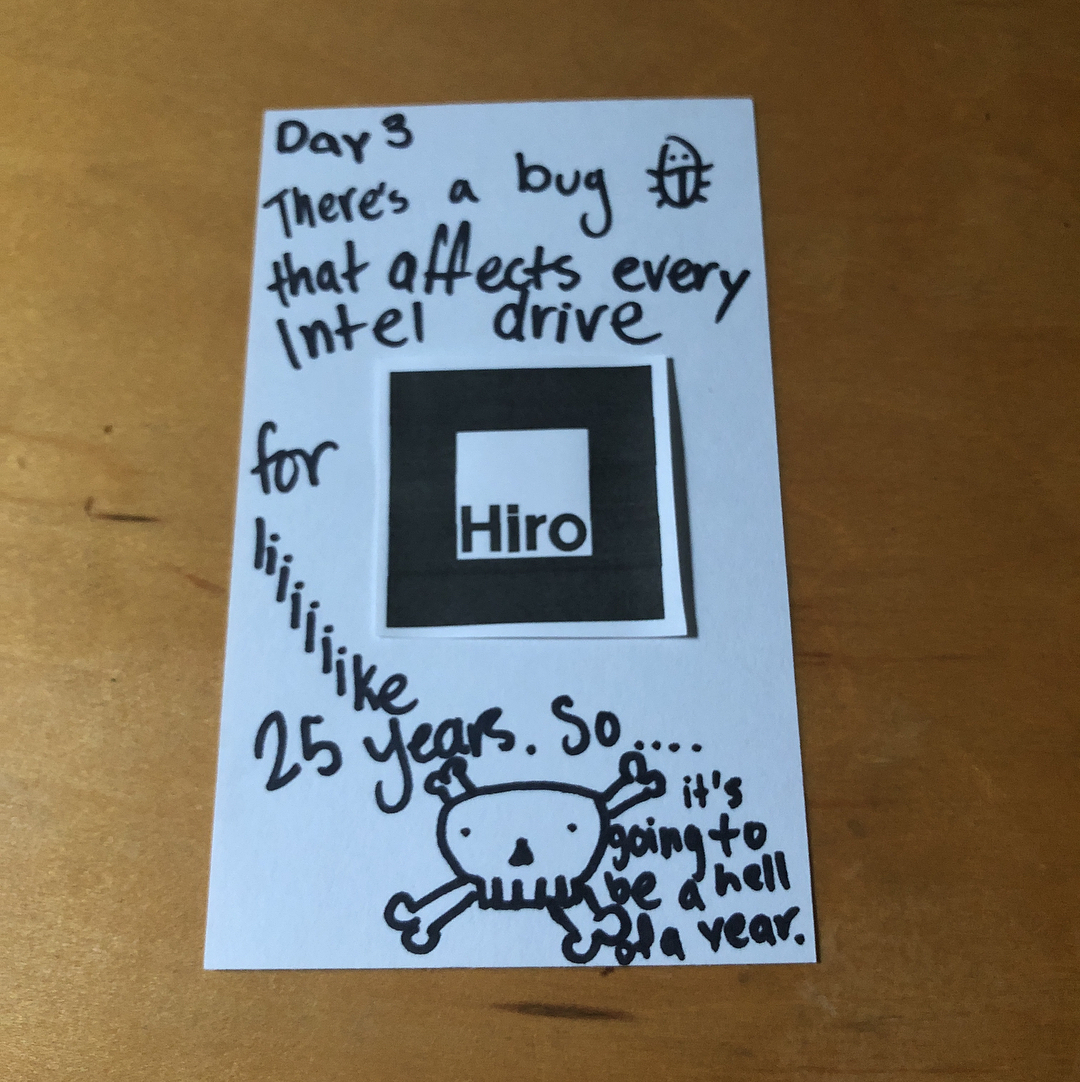 Day 3
There's a bug
that affects every
Intel drive
for
Hiro
liiiiiike
25 years. So....
it's
going to
be a hell
of a year.